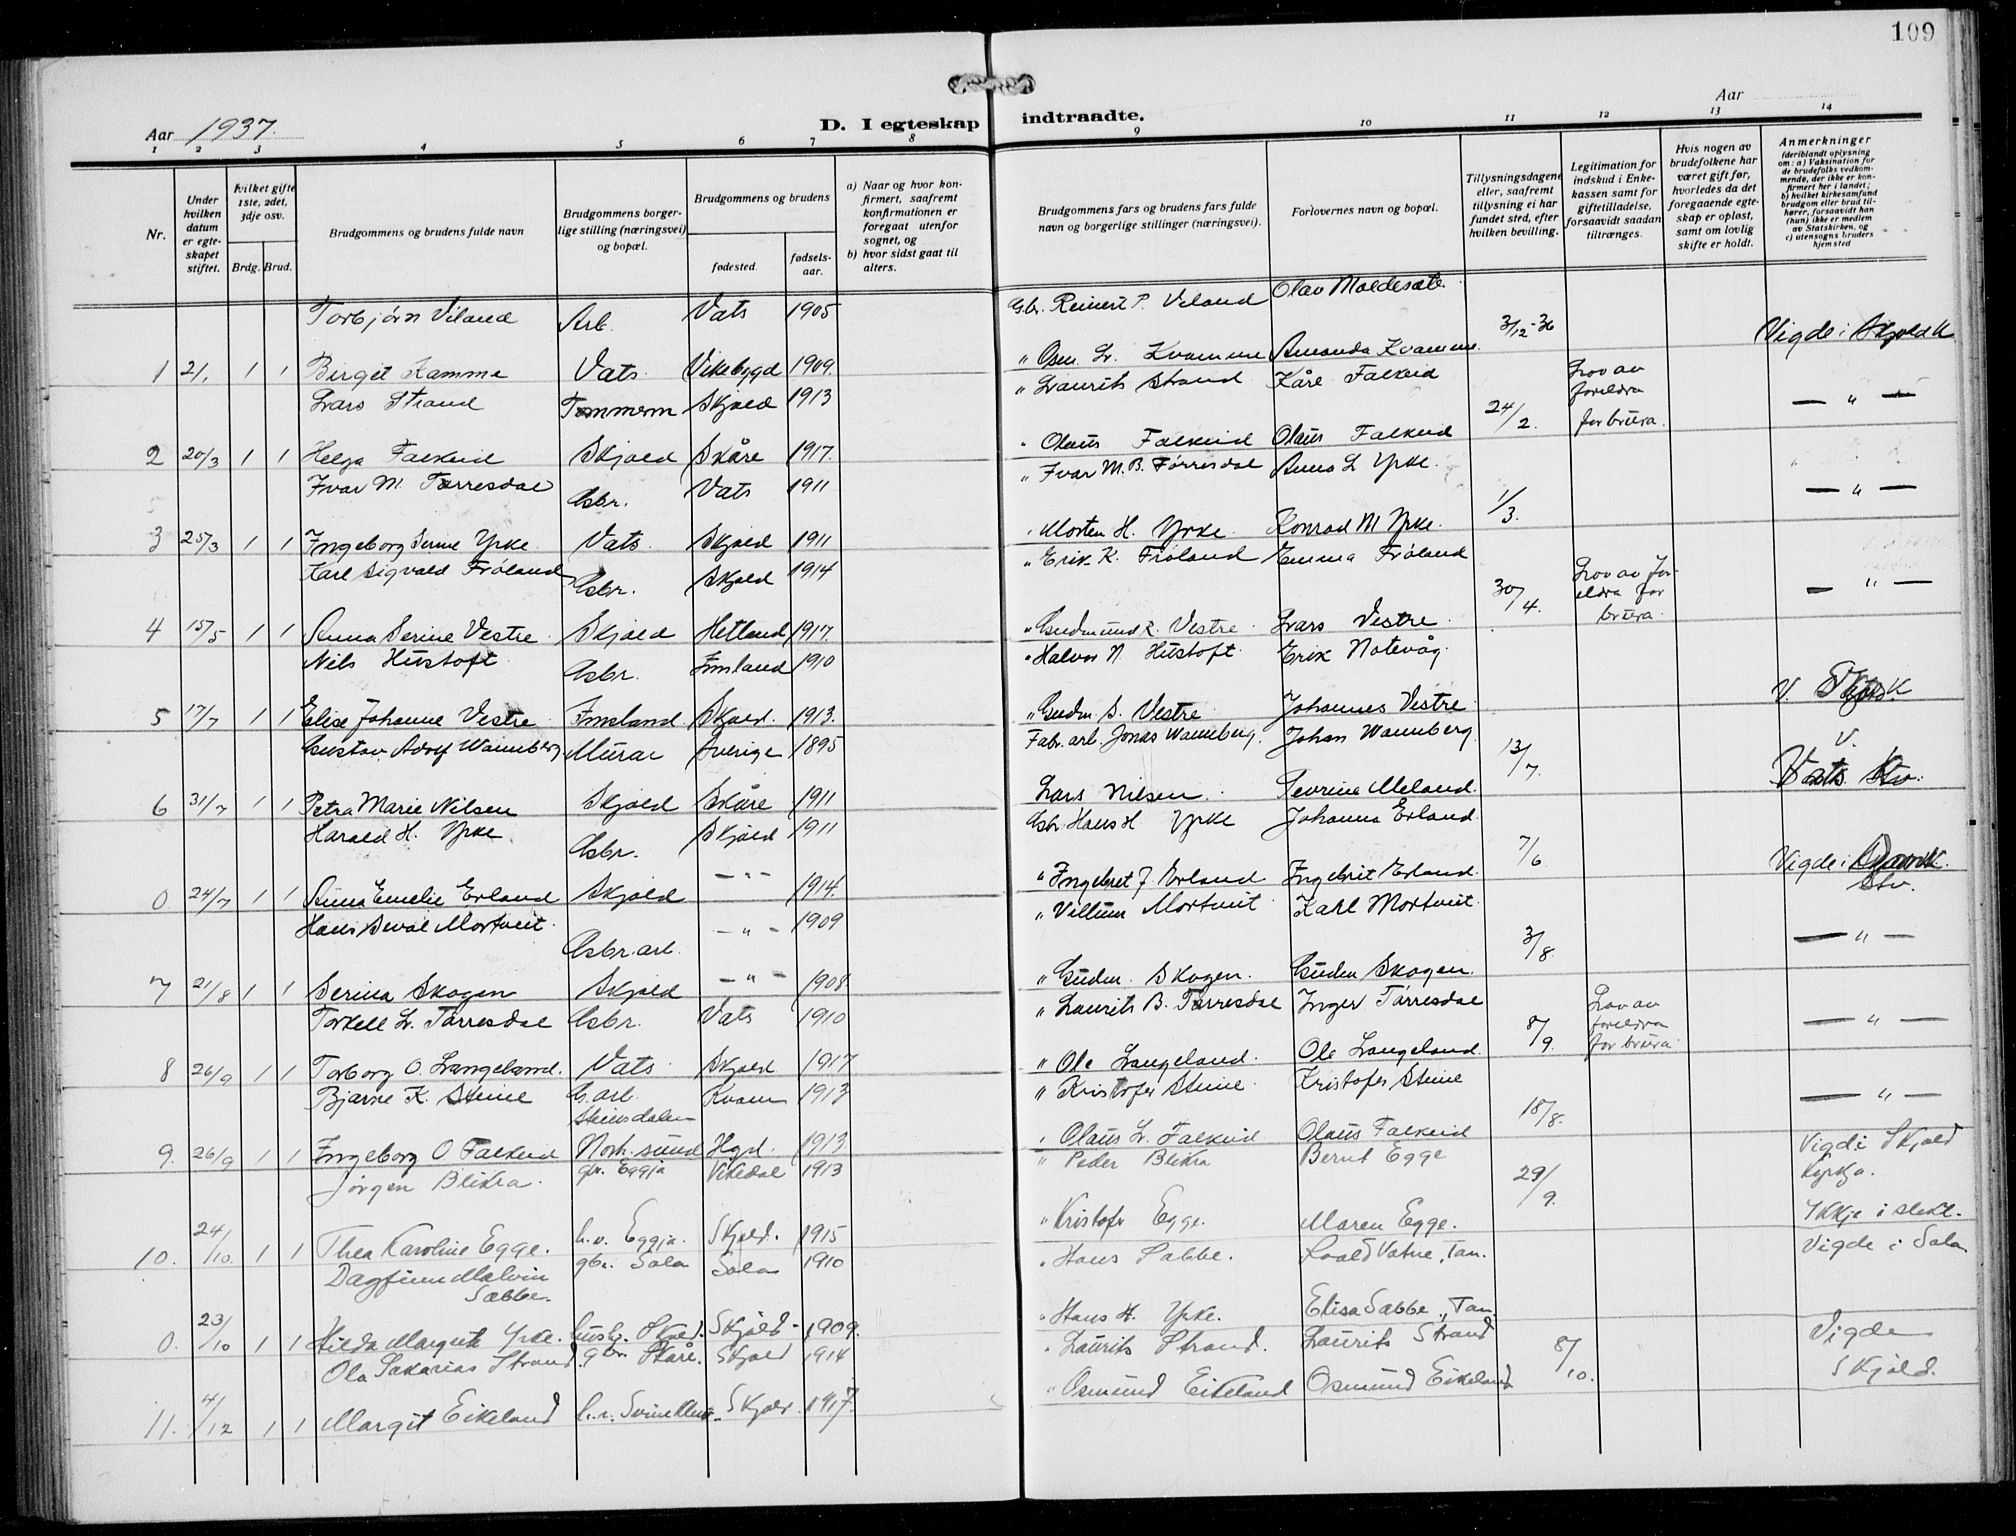 109
Aar 1937.
D. I egteskap indtraadte.
Aar
1 2 3 4 5 6 7 8 9 10 11 12 13 14
Nr.
Under hvilken datum er egteskapet stiftet.
Hvilket gifte 1ste, 2det, 3dje osv.
Brdg. Brud.
Brudgommens og brudens fulde navn
Brudgommens borgerlige stilling (næringsvei) og bopæl.
Brudgommens og brudens
fødested.
fødselsaar.
a) Naar og hvor konfirmert, saafremt konfirmationen er foregaat utenfor sognet, og
b) hvor sidst gaat til alters.
Brudgommens fars og brudens fars fulde navn og borgerlige stillinger (næringsvei).
Forlovernes navn og bopæl.
Tillysningsdagene eller, saafremt tillysning ei har fundet sted, efter hvilken bevilling.
Legitimation for indskud i Enkekassen samt for giftetilladelse, forsaavidt saadan tiltrænges.
Hvis nogen av brudefolkene har været gift før, hvorledes da det foregaaende egteskap er opløst, samt om lovlig skifte er holdt.
Anmerkninger
(deriblandt oplysning om: a) Vaksination for de brudefolks vedkommende, der ikke er konfirmert her i landet; b) hvilket kirkesamfund brudgom eller brud tilhører, forsaavidt han (hun) ikke er medlem av Statskirken, og c) utensogns bruders hjemsted
Torbjørn Viland Arb. Vats 1905 Gbr. Reinert P. Viland Olav Moldesæte 3/12-36 Vigde i Skjold K
1 2/1 1 1 Birgit Kamme Vats. Vikebygd 1909. " Osm. L. Kvamme Amanda Kvamme.
Lars Strand Tømmerm Skjold 1913 " Laurits Strand Kåre Falkeid 24/2. Lov av foreldra for brura. — " —
2 20/3 1 1 Helga Falkeid Skjold Skåre 1917. " Olaus Falkeid Olaus Falkeid
Ivar M. Tørresdal Gbr. Vats 1911 " Ivar M. B. Tørresdal Anna L Yrke. 1/3. — " —
3 25/3 1 1 Ingeborg Serine Yrke. Vats. Skjold 1911 " Morten H. Yrke. Konrad M Yrke.
Karl Sigvald Frøland Gbr. Skjold 1914 " Erik K. Frøland Emma Frøland 30/4. Lov av foreldra for brura. — " —
4 15/5 1 1 Anna Serine Vestre. Skjold Hetland 1917. " Gudmund R. Vestre. Lars Vestre.
Nils Hustoft. Gbr. Imsland 1910 " Halvor N. Hustoft. Erik Notevåg. V.
5 17/7 1 1 Elise Johanne Vestre. Imsland Skjold. 1913. " Gudm. S. Vestre. Johannes Vestre.
Gustav Adolf Wannberg. Murar Sverige 1895 Fabr. arb. Jonas Wannberg. Johan Wannberg. 13/7. V.
6 31/7 1 1 Petra Marie Nilsen Skjold Skåre 1911 Lars Nilsen. Severine Meland.
Harald H. Yrke Gbr. Skjold 1911 Gbr. Hans H Yrke Johanna Erland. 7/6 Vigde i
0. 24/7 1 1 Anna Emelie Erland Skjold — " — 1914. " Ingebret J. Erland Ingebrit Erland.
Hans Seval Mortveit. Gbr. arb. — " — 1909 " Villum Mortveit Karl Mortveit. 3/8. — " —
7 21/8 1 1 Serina Skogen Skjold — " — 1908. " Gudm. Skogen. Gudm Skogen.
Torkell L. Tørresdal Gbr. Vats 1910 " Laurits B. Tørresdal Inger Tørresdal 8/9. Lov av foreldra for brura. — " —
8 26/9 1 1 Torborg O. Langeland. Vats. Skjold 1917 " Ole Langeland. Ole Langeland.
Bjarne K. Steine G. arb. Steinsdalen Kvam 1913 " Kristofer Steine. Kristofer Steine 18/8. — " —
9. 26/9 1 1 Ingeborg O. Falkeid Norh.sund Hgsd. 1913 " Olaus L. Falkeid Olaus Falkeid
Jørgen Blikra. gbr. Eggja Vikedal 1913 " Peder Blikra Bernt Egge 29/9. Vigde i Skjold kyrkja.
10. 24/10 1 1 Thea Karoline Egge. h.v. Eggja. Skjold. 1915 " Kristofer Egge. Maren Egge. Ikkje i slekt.
Dagfinn Malvin Sæbbe. gbr. Sola Sola 1910 " Hans Sæbbe. Vatne, Tan. Vigde i Sola.
0. 23/10 1 1 Hilda Margrete Yrke. Skjold. Skjold. 1909. " Hans H. Yrke. Elisa Sæbbe, Tan.
Ola Sakarias Strand. gbr. Skåre. Skjold 1914 " Laurits Strand. Laurits Strand 8/10. Vigde Skjold.
11. 4/12 1 1 Margit Eikeland h.v. Skjold. 1917. " Osmund Eikeland Osmund Eikeland